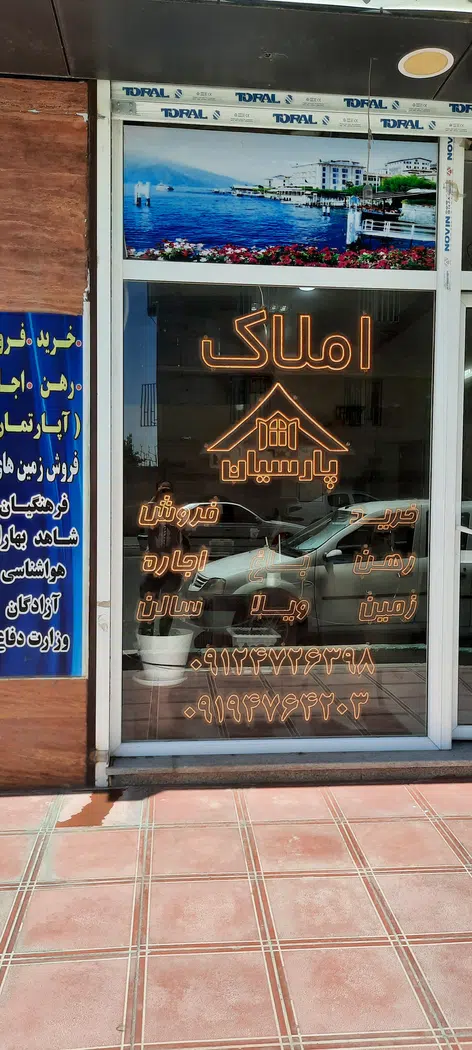 TORAL TORAL TORAL TORAL
TORAL TORAL TORAL
NOVIN
NOVIN
املاک
پارسیان
خرید فروش
رهن باغ اجاره
زمین ویلا سالن
۰۹۱۲۴۷۲۶۳۹۸
۰۹۱۹۴۷۶۴۲۰۳
خرید فرو
رهن اجا
( آپارتمان
فروش زمین های
فرهنگیان
شاهد بهار
هواشناسی
آزادگان
وزارت دفاع